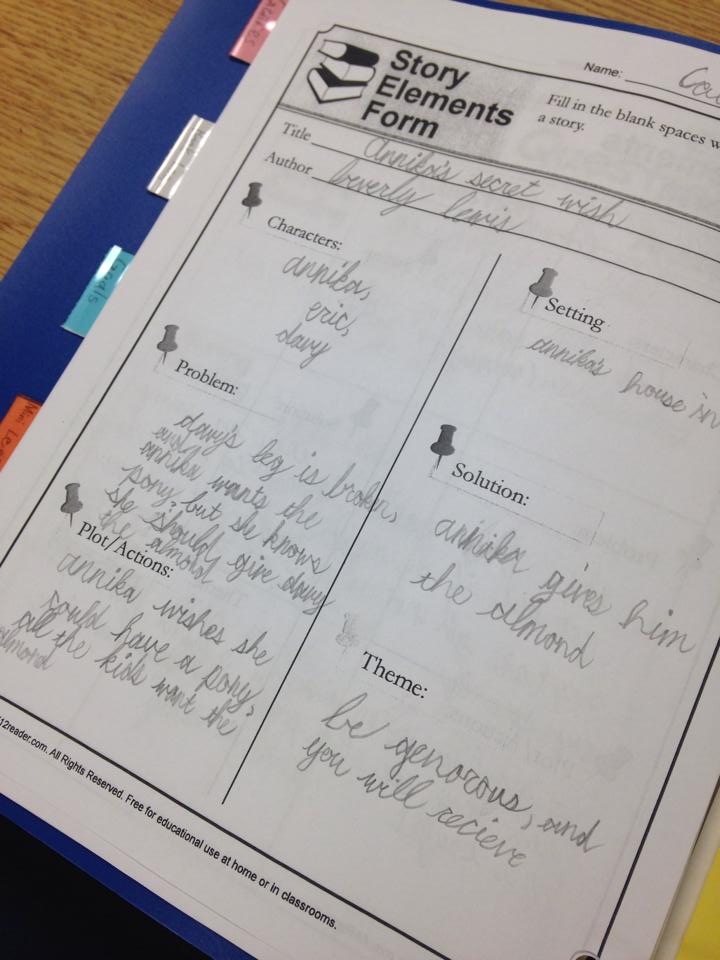 Name:
Story
Elements
Form
Fill in the blank spaces w
a story.
Title Annika's secret wish
Author beverly lewis
Characters:
annika,
eric,
davy
Setting
annika's house in
Problem:
davy's leg is broken,
and
annika wants the
pony, but she knows
she should give davy
the almond
Solution:
annika gives him
the almond
Plot/Actions:
annika wishes she
could have a pony,
all the kids want the
almond
Theme:
be generous, and
you will recieve
12reader.com. All Rights Reserved. Free for educational use at home or in classrooms.